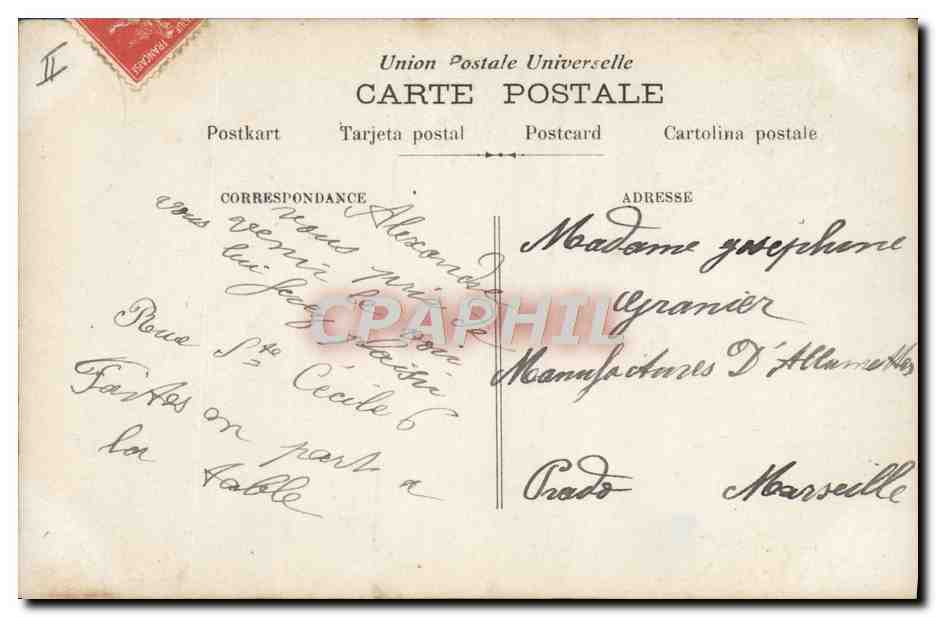 II
FRANÇAISE
Union Postale Universelle
CARTE POSTALE
Postkart Tarjeta postal Postcard Cartolina postale
CORRESPONDANCE
ADRESSE
Alexandre
vous pri de
vous venir le voir
lui feré plaisir
Rue Ste Cécile 6
Faites en part a
la table
Madame Joséphine
Granier
Manufactures D'Allumettes
Prado Marseille
CPAPHIL